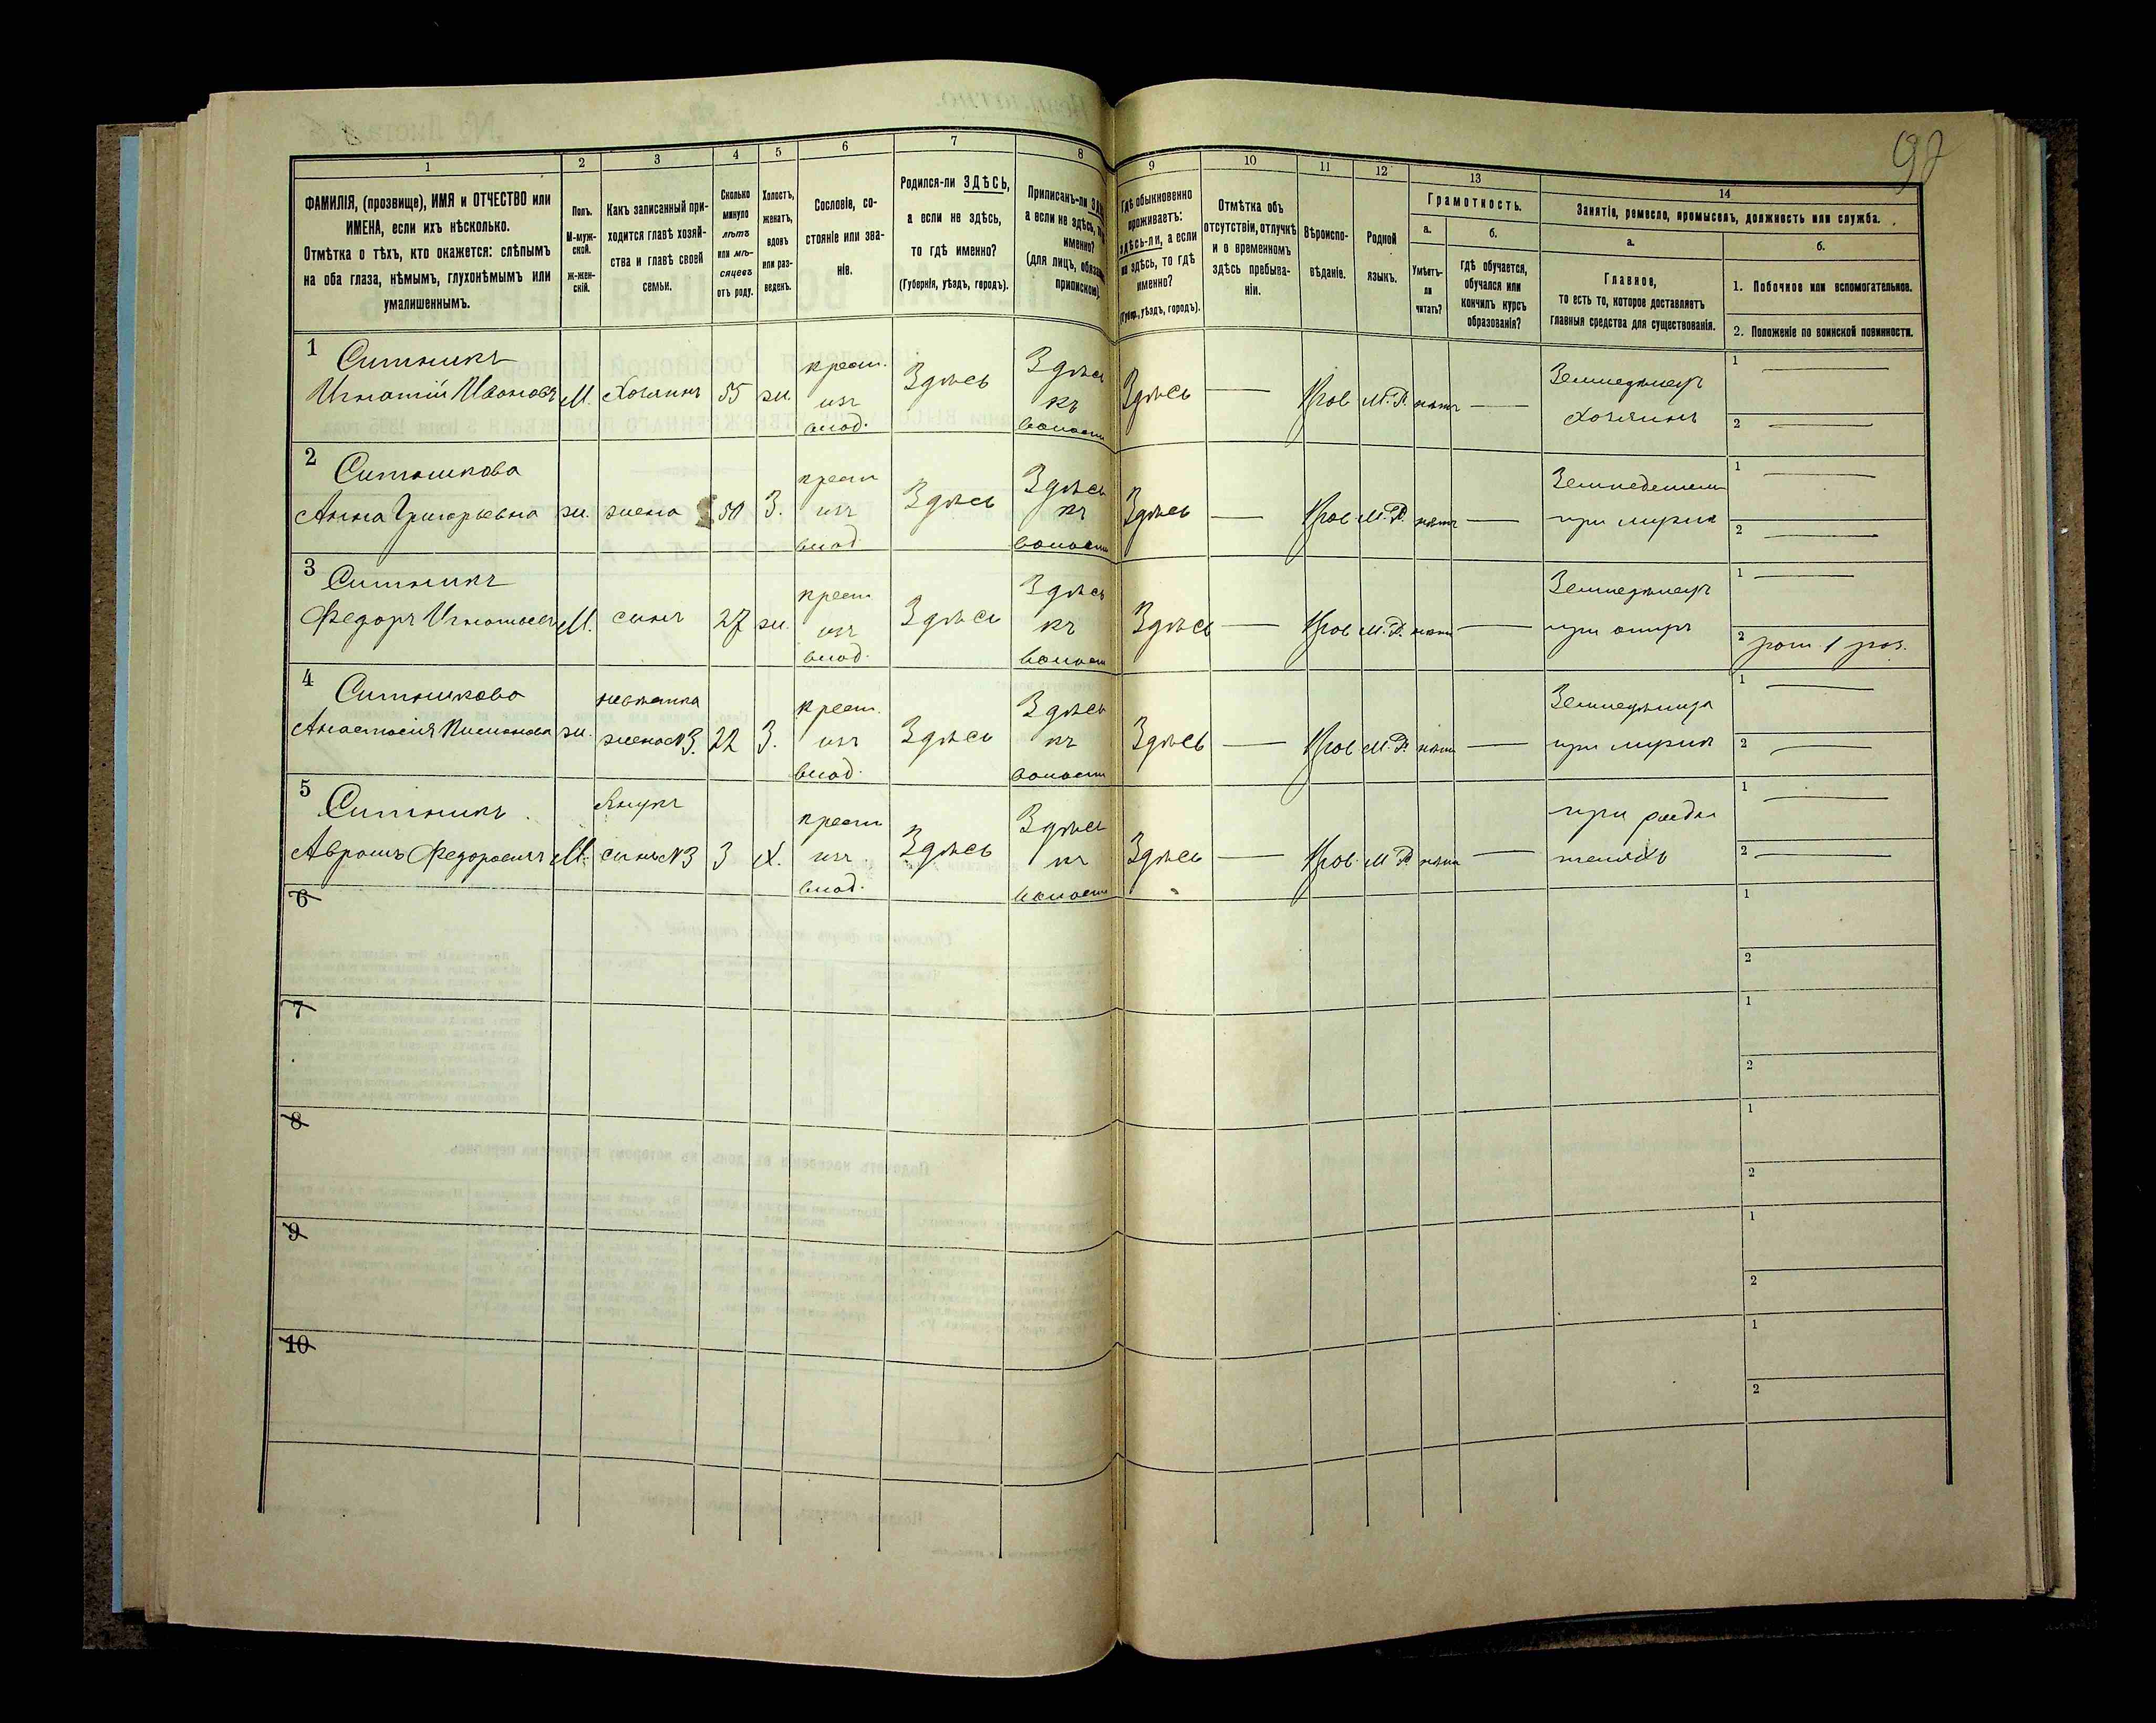 97
1
2
3
4
5
6
7
8
9
10
11
12
13
14
ФАМИЛІЯ, (прозвище), ИМЯ и ОТЧЕСТВО или
ИМЕНА, если ихъ нѣсколько.
Отмѣтка о тѣхъ, кто окажется: слѣпымъ
на оба глаза, нѣмымъ, глухонѣмымъ или
умалишеннымъ.
Полъ.
М-муж-
ской.
Ж-жен-
скій.
Какъ записанный при-
ходится главѣ хозяй-
ства и главѣ своей
семьи.
Сколько
минуло
лѣтъ
или мѣ-
сяцевъ
отъ роду.
Холостъ,
женатъ,
вдовъ
или раз-
веденъ.
Сословіе, со-
стояніе или зва-
ніе.
Родился-ли ЗДѢСЬ,
а если не здѣсь,
то гдѣ именно?
(Губернія, уѣздъ, городъ).
Приписанъ-ли
а если не здѣсь,
именно?
(для лицъ,
припискою).
Гдѣ обыкновенно
проживаетъ:
здѣсь-ли, а если
не здѣсь, то гдѣ
именно?
(Губер., уѣздъ, городъ).
Отмѣтка объ
отсутствіи, отлучкѣ
и о временномъ
здѣсь пребыва-
ніи.
Вѣроиспо-
вѣданіе.
Родной
языкъ.
Грамотность.
а.
Умѣетъ-
ли
читать?
б.
Гдѣ обучается,
обучался или
кончилъ курсъ
образованія?
Занятіе, ремесло, промыселъ, должность или служба.
а.
Главное,
то есть то, которое доставляетъ
главныя средства для существованія.
б.
1. Побочное или вспомогательное.
2. Положеніе по воинской повинности.
1 Ситникъ
Игнатій Ивановъ М. Хозяинъ 55 ж. крест. изъ влад. Здѣсь Здѣсь къ волости Здѣсь — Прав М.Р. нѣтъ — Земледѣлецъ Хозяинъ 1 — 2 —
2 Ситникова
Анна Григорьевна ж. жена 50 З. крест изъ влад. Здѣсь Здѣсь къ волости Здѣсь — Прав. М.Р. нѣтъ — при мужѣ 1 — 2 —
3 Ситникъ
Федоръ Игнатьевъ М. сынъ 27 ж. крест изъ влад. Здѣсь Здѣсь къ волости Здѣсь — Прав М.Р. нѣтъ — Земледѣлецъ при отцѣ 1 — 2 рат. 1 раз.
4 Ситникова
Анастасія ж. невѣстка жена №3. 22 З. крест. изъ влад. Здѣсь Здѣсь къ волости Здѣсь — Прав М.Р. нѣтъ — при мужѣ 1 — 2 —
5 Ситникъ
Аврамъ Федоровичъ М. Внукъ сынъ №3 3 Х. крест изъ влад. Здѣсь Здѣсь къ волости Здѣсь — Прав. М Р. нѣтъ — при 1 — 2 —
6 1 2
7 1 2
8 1 2
9 1 2
10 1 2